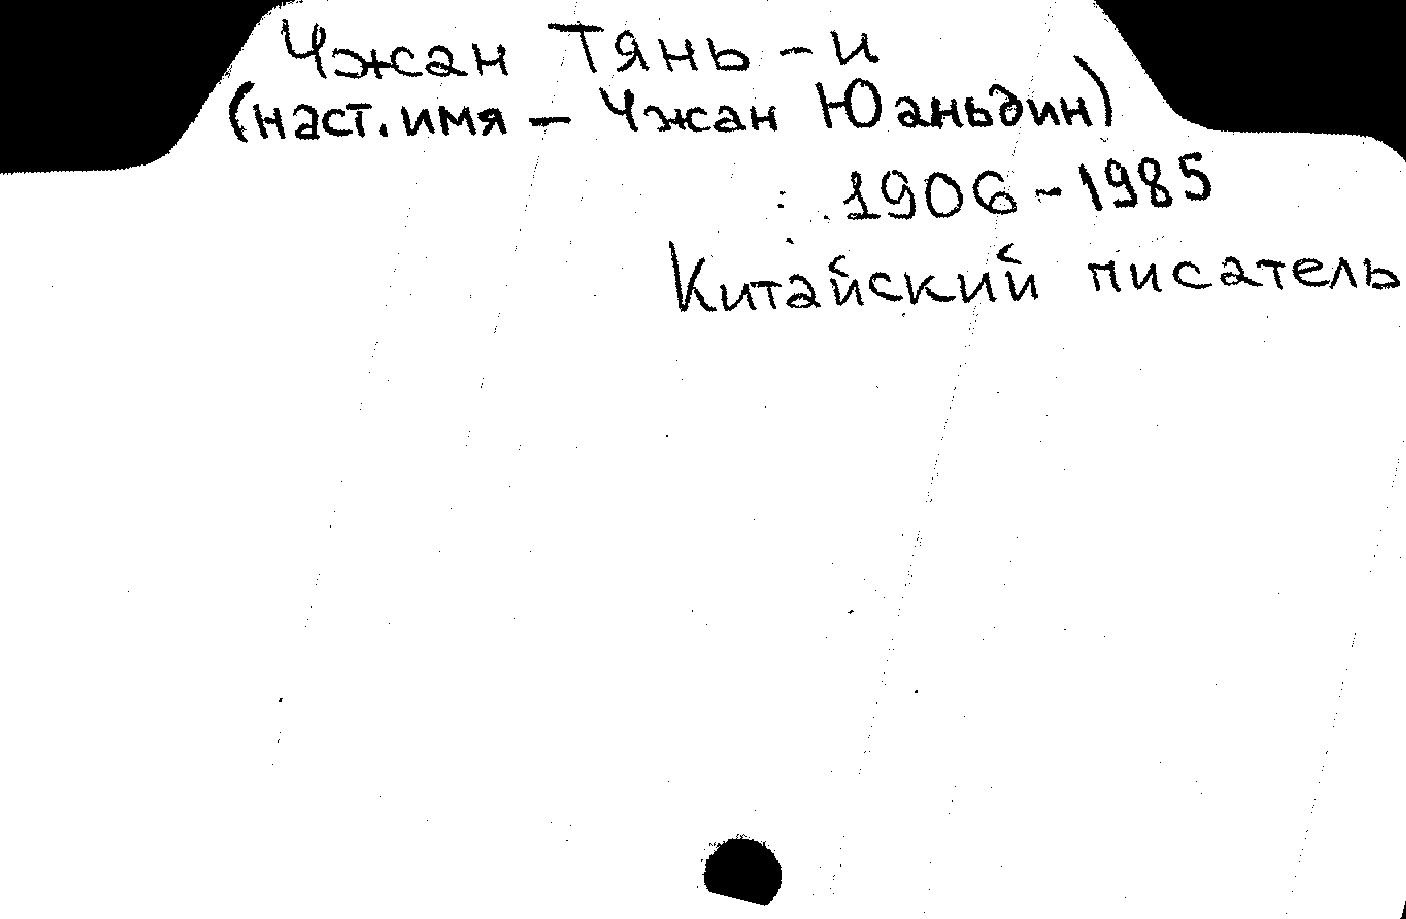 Чжан Тянь-и
(наст. имя - Чжан Юаньдин)
1906-1985
Китайский писатель